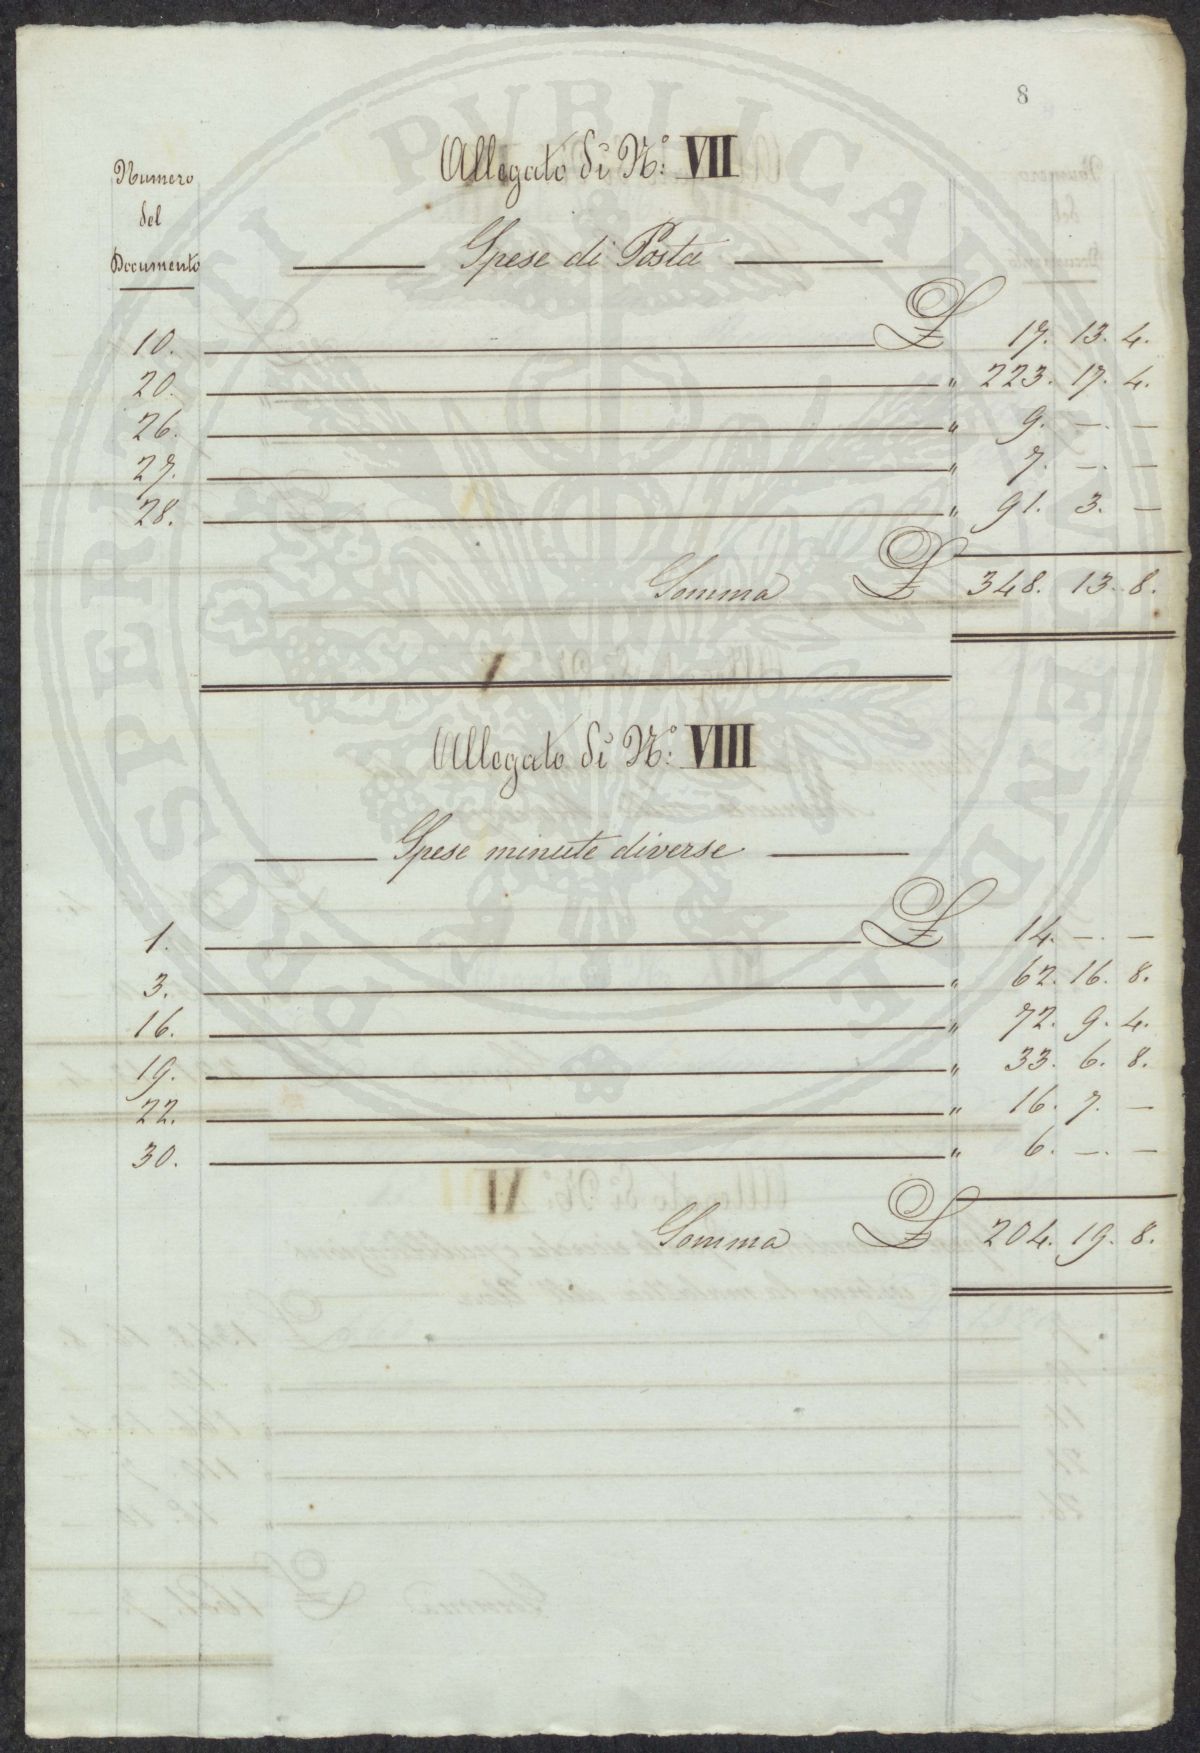 8
Allegato di N.° VII
Numero
del
Documento
Spese di Posta
10. £ 17. 13. 4.
20. " 223. 17. 4.
26. " 9. —. —
27. " 7. —. —
28. " 91. 3. —
Somma £ 348. 13. 8.
Allegato di N.° VIII
Spese minute diverse
1. £ 14. —. —
3. " 62. 16. 8.
16. " 72. 9. 4.
19. " 33. 6. 8.
22. " 16. 7. —
30. " 6. —. —
Somma £ 204. 19. 8.
PROSPERITATI PVBLICAE AVGENDAE